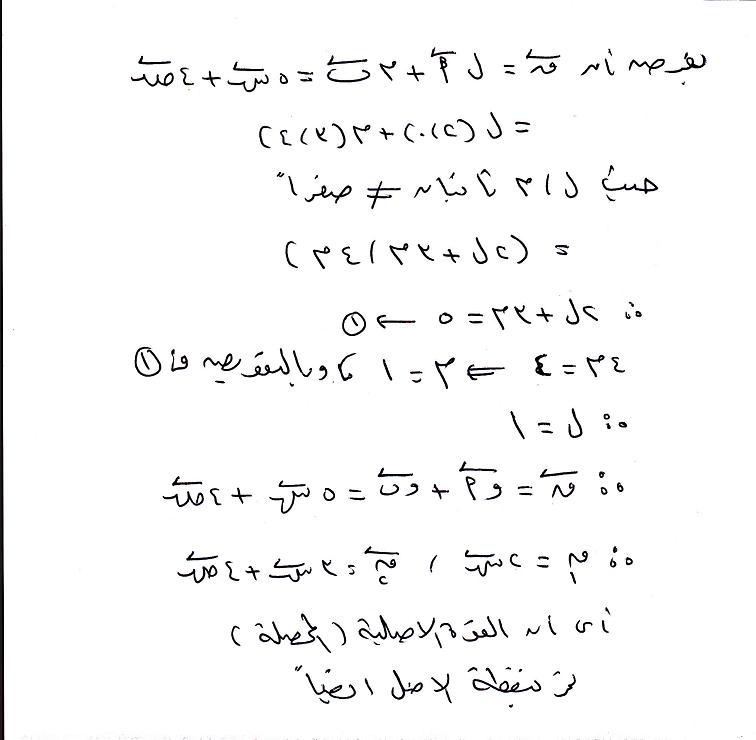 بفرض أن ق = ل أ + م ب = ٥ س + ٤ ص
= ل (٢ ، ٠) + م (٣ ، ٤)
حيث ل ، م ثابتان ≠ صفراً
= (٢ل + ٣م ، ٤م)
∴ ٢ل + ٣م = ٥ ← ①
٤م = ٤ ⇐ م = ١ ، وبالتعويض فى ①
∴ ل = ١
∴ ق = و أ + و ب = ٥ س + ٤ ص
∴ ق١ = ٢ س ، ق٢ = ٣ س + ٤ ص
أى أن القوة الاصلية (المحصلة)
تمر بنقطة الاصل ايضاً